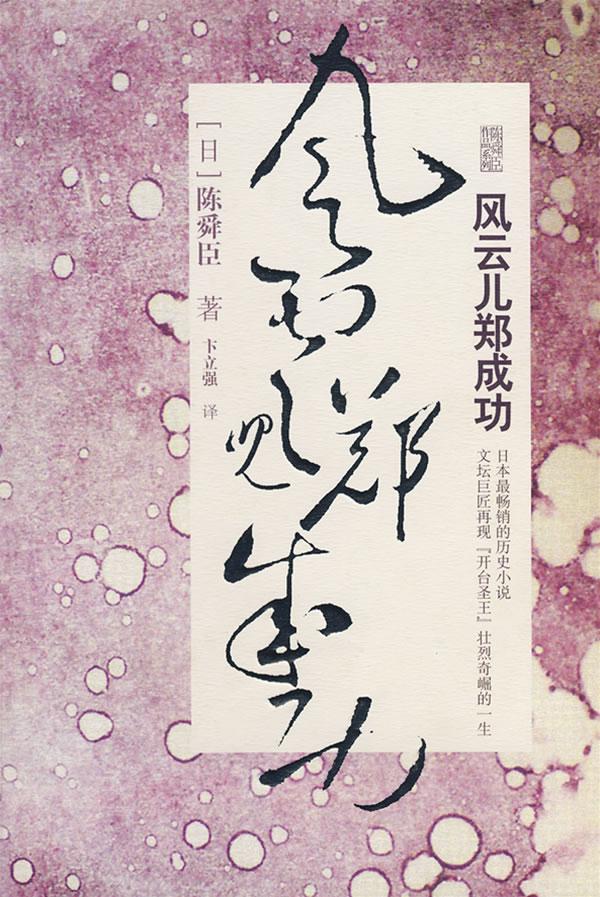 陈舜臣
作品系列
风云儿郑成功
日本最畅销的历史小说
文坛巨匠再现『开台圣王』壮烈奇崛的一生
风云儿郑成功
[日]陈舜臣 著
卞立强 译